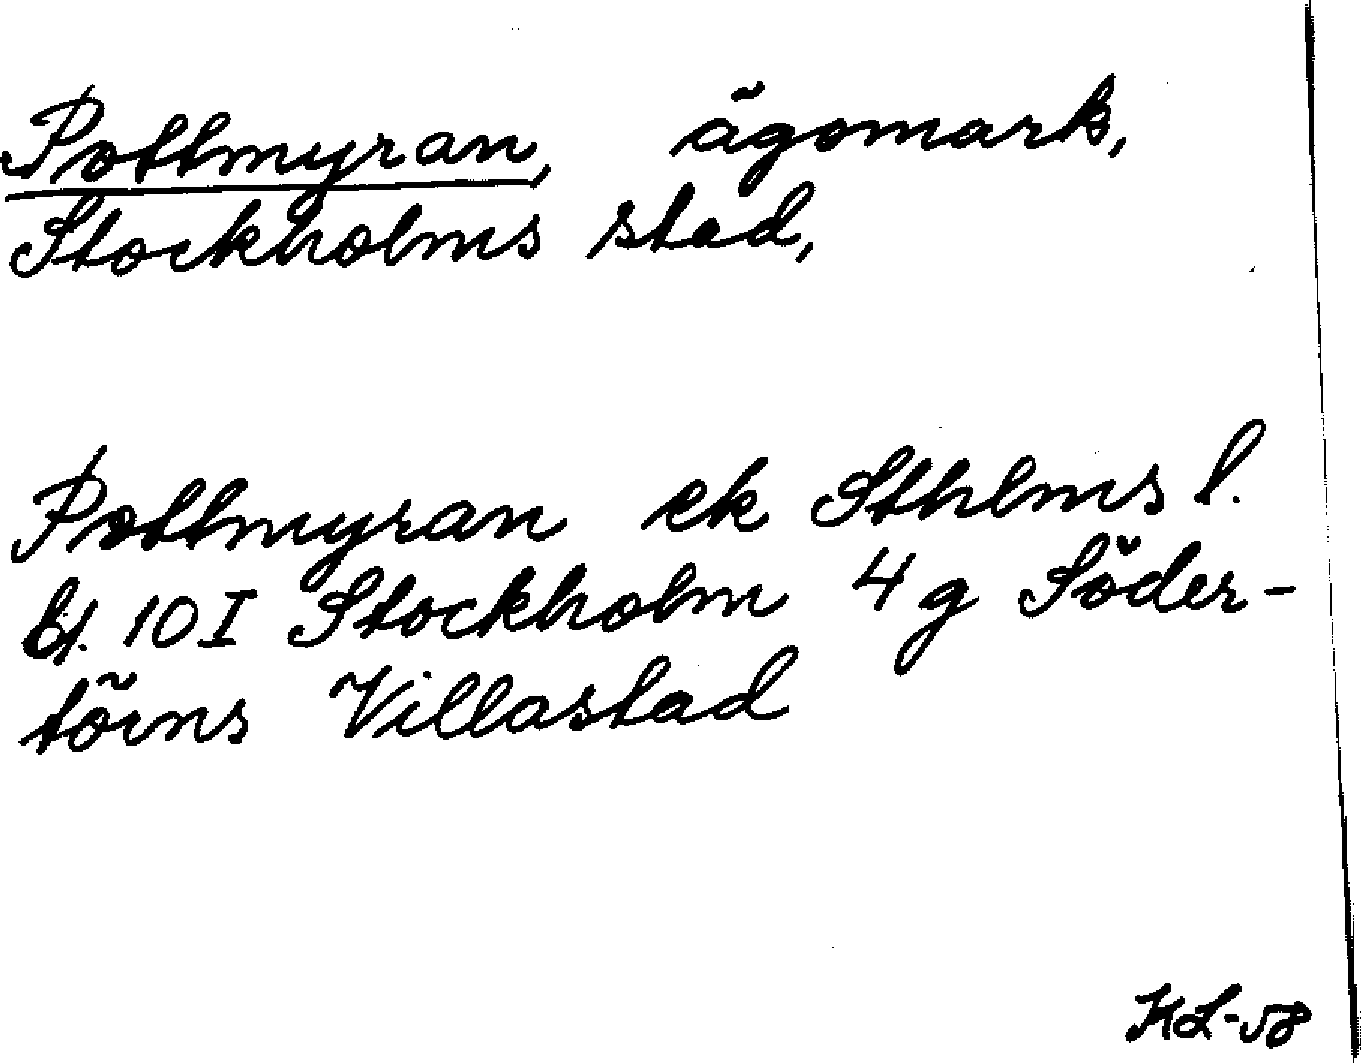 Pottmyran, ägomark,
Stockholms stad,
Pottmyran ek Sthlms l.
bl. 10 I Stockholm 4 g Söder-
törns Villastad
KL-58